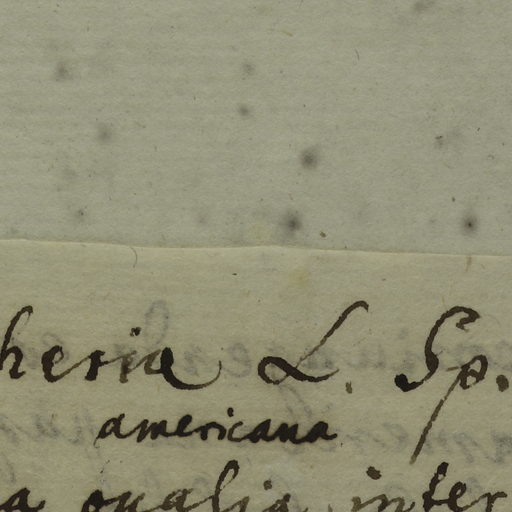 heria L. Sp.
americana
a ovalia inter